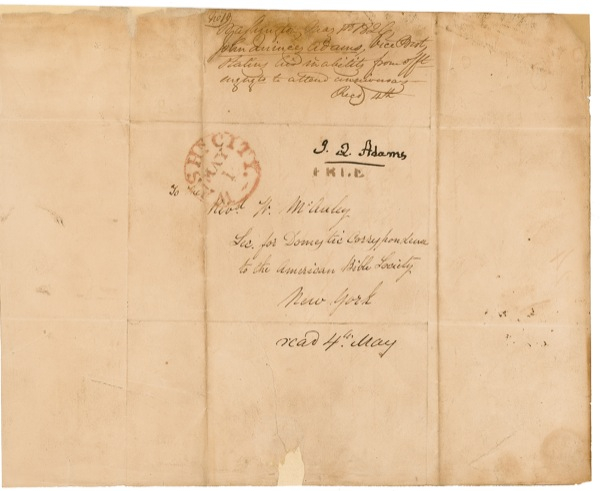 Washington May 1st
John Quincy Adams, Vice Prest,
stating his inability from of
to attend anniversary
Recd 4th
J. Q. Adams
FREE
WASHN CITY.
MAY
1
To the
Revd. W. McAuley
Sec. for Domestic Correspondence
to the American Bible Society
New York
read 4th May